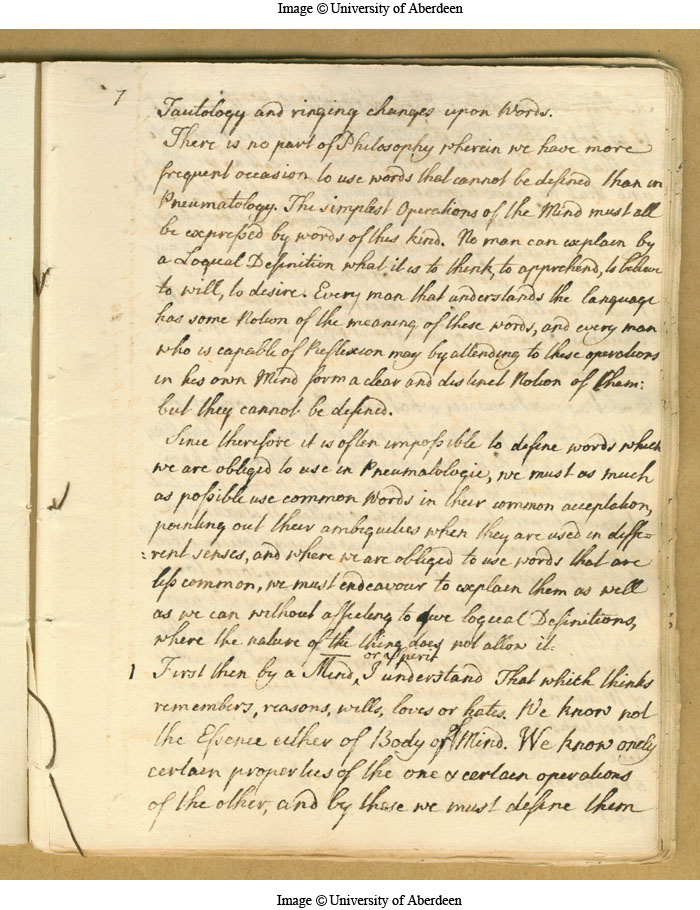 Image © University of Aberdeen
7
Tautology and ringing changes upon Words.
There is no part of Philosophy wherein we have more
frequent occasion to use words that cannot be defined than in
Pneumatology. The simplest Operations of the Mind must all
be expressed by words of this kind. No man can explain by
a Logical Definition what it is to think, to apprehend, to believe
to will, to desire. Every man that understands the language
has some Notion of the meaning of these words, and every man
who is capable of Reflexion may by attending to these operations
in his own Mind form a clear and distinct Notion of them:
but they cannot be defined.
Since therefore it is often impossible to define words which
we are obliged to use in Pneumatologie, we must as much
as possible use common Words in their common acceptation,
pointing out their ambiguities when they are used in diffe-
:rent senses, and where we are obliged to use words that are
less common, we must endeavour to explain them as well
as we can without affecting to give logical Definitions,
where the nature of the thing does not allow it.
or Spirit
1 First then by a Mind, I understand That which thinks
remembers, reasons, wills, loves or hates. We know not
the Essence either of Body or of Mind. We know onely
certain properties of the one & certain operations
of the other, and by these we must define them
Image © University of Aberdeen